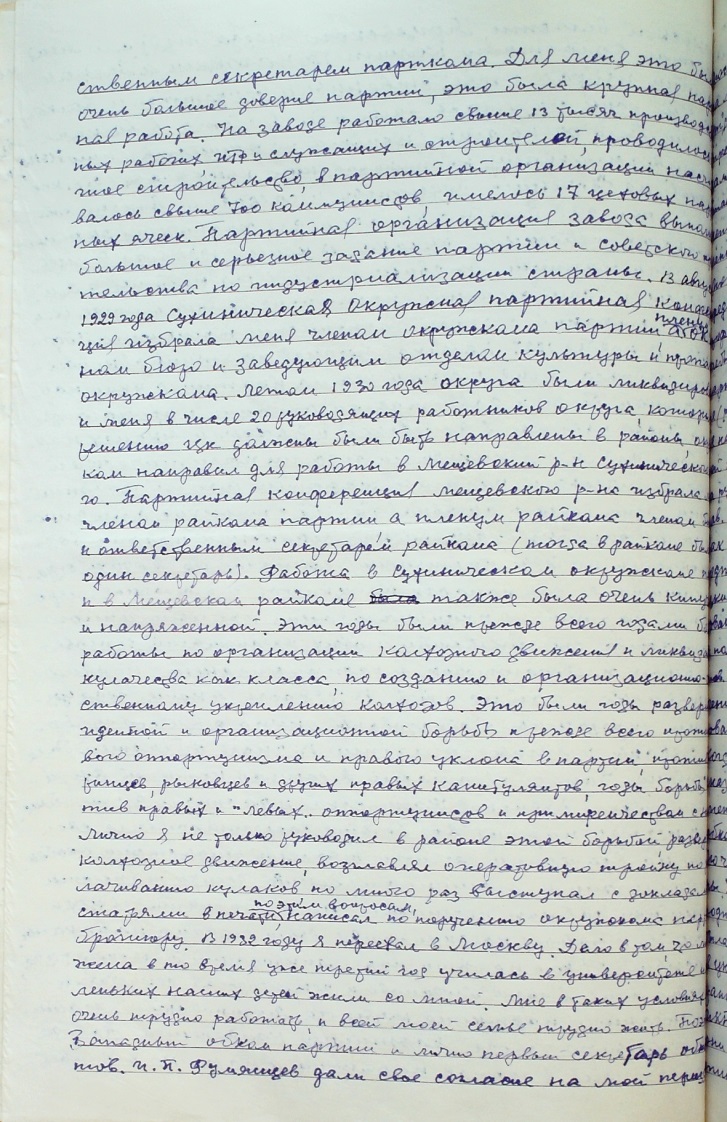 ственным секретарем парткома. Для меня это была
очень большое доверие партии, это была крупная
ная работа. На заводе работало свыше 13 тысяч производ
ных рабочих ИТР и служащих и строителей, проводилось
ное строительство, в партийной организации насчи
валось свыше 700 коммунистов, имелось 17 цеховых пар
ных ячеек. Партийная организация завода выполн
большое и серьезное задание партии и советского
тельства по индустриализации страны. В авгу
1929 года Сухиническая окружная партийная конфе
ция избрала меня членом окружкома партии, пленум
ном бюро и заведующим отделом культуры и пропа
окружкома. Летом 1930 года округа были ликвидиро
и меня в числе 20 руководящих работников округа, которые
решению ЦК должны были быть направлены в районы,
ком направил для работы в Мещевский р-н Сухиническо
го. Партийная конференция Мещевского р-на избрала
членом райкома партии а пленум райкома членом б
и ответственным секретарем райкома (тогда в райкоме бы
один секретарь). Работа в Сухиническом окружкоме
и в Мещевском райкоме также была очень кипуч
и напряженной. Эти годы были прежде всего годами
работы по организации колхозного движения и ликвида
кулачества как класса, по созданию и организационно-
ственному укреплению колхозов. Это были годы развер
идейной и организационной борьбы прежде всего против
вого оппортунизма и правого уклона в партии, против
ринцев, рыковцев и других правых капитулянтов, годы борьбы
тив правых и "левых" оппортунистов и примиренчества с
Лично я не только руководил в районе этой борьбой
колхозное движение, возглавлял оперативную тройку по
лачиванию кулаков но много раз выступал с докладам
статьями в печати по этим вопросам, написал по поручению окружкома
брошюру. В 1932 году я переехал в Москву. Дело в том, что
жена в то время уже третий год училась в университете
леньких наших детей жили со мной. Мне в таких условиях
очень трудно работать, и всей моей семье трудно жить.
Западный обком партии и лично первый секретарь об
тов. И. П. Румянцев дали свое согласие на мой перев